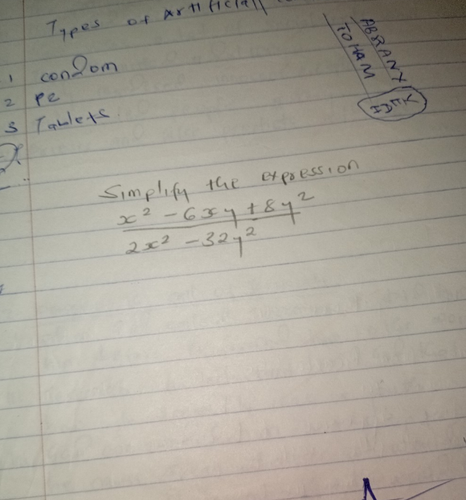 Types of artificial
1 condom
2 PE
3 Tablets
ABRANY
TOHAM
Simplify the expression
x² - 6xy + 8y²
2x² - 32y²